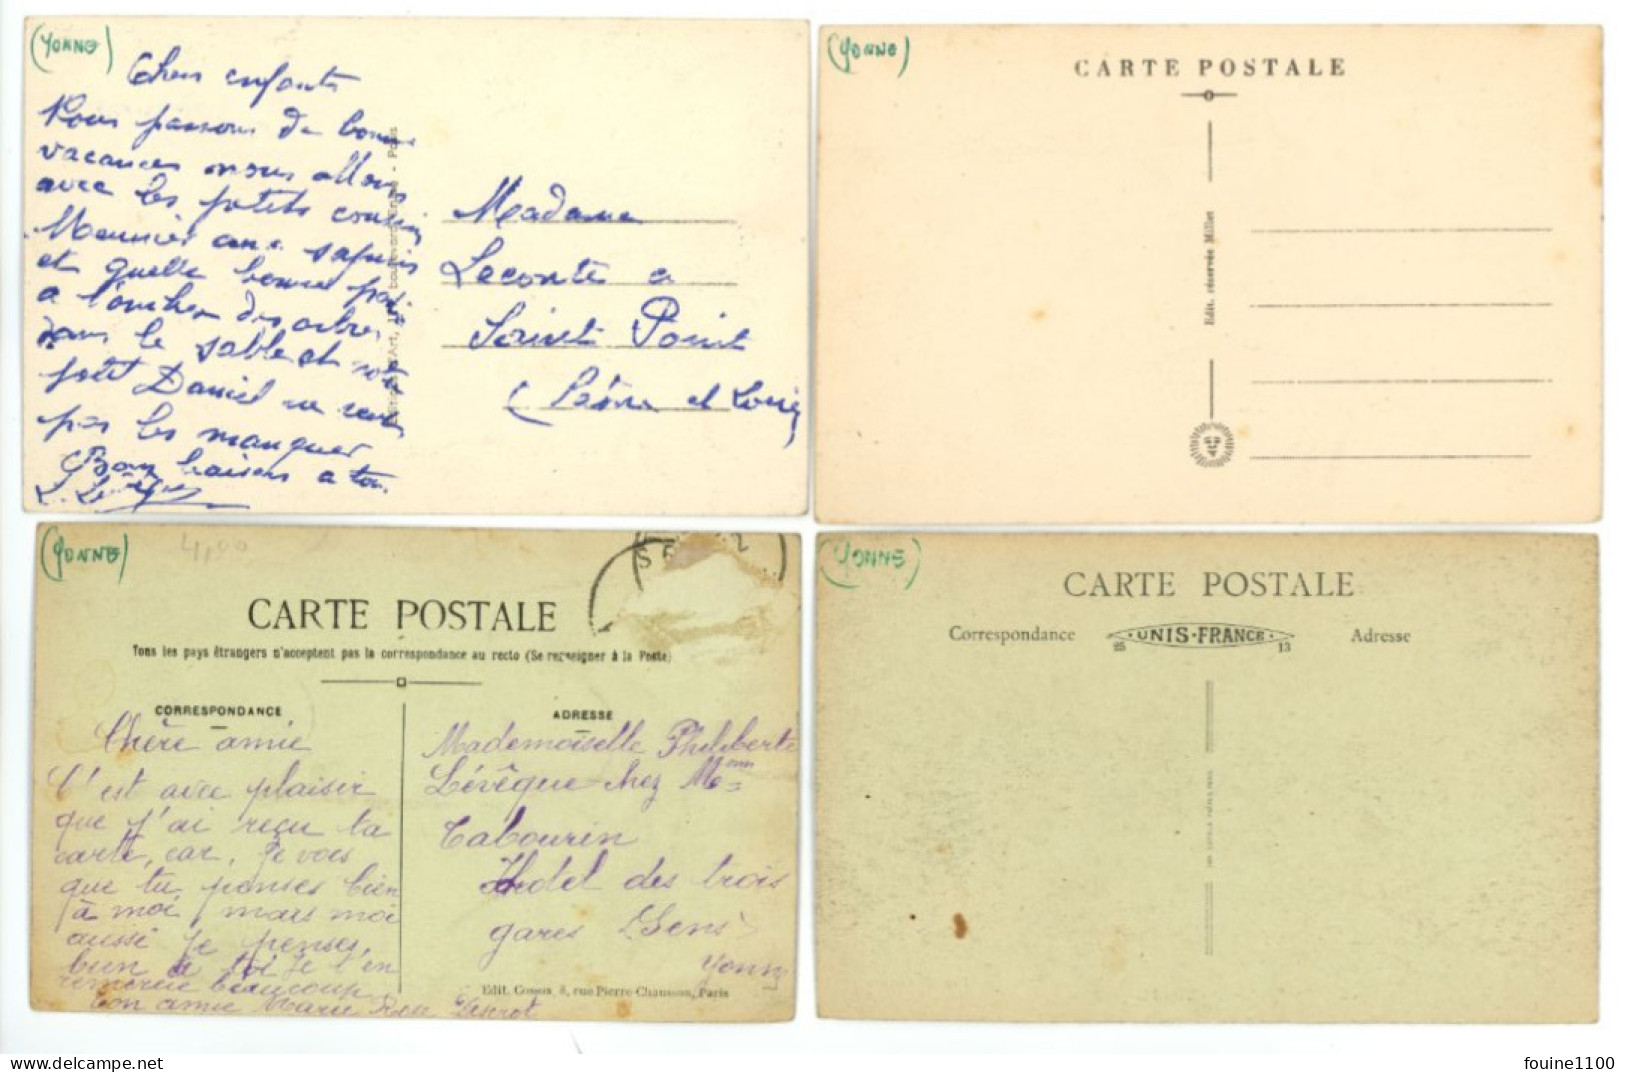 (YONNE)
Chers enfants
Nous passons de bonnes
vacances nous allons
avec les petits cousins
Meunier aux sapins
et quelle bonne
a l'ombre des arbres
dans le sable et
petit Daniel ne
pas les manquer
Bons baisers a
Madame
Leconte a
Saint Point
(Saône et Loire)
Paris
(YONNE)
CARTE POSTALE
Edit. réservée Millet
(YONNE)
4,00
CARTE POSTALE
Tous les pays étrangers n'acceptent pas la correspondance au recto (Se renseigner à la Poste)
CORRESPONDANCE
ADRESSE
Chère amie
C'est avec plaisir
que j'ai reçu ta
carte, car, je vois
que tu penses bien
à moi, mais moi
aussi je penses,
bien à toi je t'en
remercie beaucoup
Ton amie Marie
Mademoiselle Philiberte
Lévêque chez Me
Tabourin
Hotel des trois
gares Sens
Yonne
Edit. Cosson 8, rue Pierre-Chausson, Paris
(YONNE)
CARTE POSTALE
Correspondance
UNIS-FRANCE
25 13
Adresse
www.delcampe.net
fouine1100